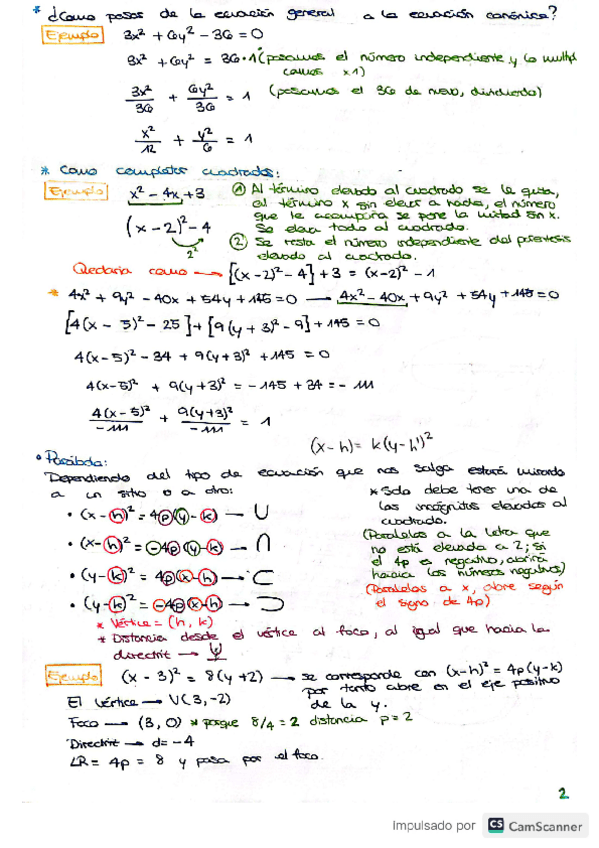 * ¿Como pasas de la ecuación general a la ecuación canónica?
Ejemplo 3x² + 6y² - 36 = 0
3x² + 6y² = 36·1 (pasamos el número independiente y lo multipl
camos x1)
3x²/36 + 6y²/36 = 1 (pasamos el 36 de nuevo, dividiendo)
x²/12 + y²/6 = 1
* Como completar cuadrados:
Ejemplo x² - 4x + 3 ① Al término elevado al cuadrado se le quita,
el término x sin elevar a nada, el número
que le acompaña se pone la mitad sin x.
(x - 2)² - 4 Se eleva todo al cuadrado.
2² ② Se resta el número independiente del paréntesis
elevado al cuadrado.
Quedaría como → [(x-2)² - 4] + 3 = (x-2)² - 1
* 4x² + 9y² - 40x + 54y + 145 = 0 → 4x² - 40x + 9y² + 54y + 145 = 0
[4(x - 5)² - 25] + [9(y + 3)² - 9] + 145 = 0
4(x-5)² - 34 + 9(y+3)² + 145 = 0
4(x-5)² + 9(y+3)² = -145 + 34 = -111
4(x-5)²/-111 + 9(y+3)²/-111 = 1
(x-h) = k(y-h')²
• Parábola:
Dependiendo del tipo de ecuación que nos salga estará mirando
a un sitio o a otro:
• (x-h)² = 4p(y-k) → ∪
• (x-h)² = -4p(y-k) → ∩
• (y-k)² = 4p(x-h) → ⊂
• (y-k)² = -4p(x-h) → ⊃
* Solo debe tener una de
las incógnitas elevadas al
cuadrado.
(Paralelas a la letra que
no está elevada a 2; si
el 4p es negativo, abrirá
hacia los números negativos)
(Paralelas a x, abre según
el signo de 4p)
* Vértice = (h, k)
* Distancia desde el vértice al foco, al igual que hacia la
directriz →
Ejemplo (x - 3)² = 8(y + 2) → se corresponde con (x-h)² = 4p(y-k)
por tanto abre en el eje positivo
de la y.
El vértice → V(3, -2)
Foco → (3, 0) * porque 8/4 = 2 distancia p = 2
Directriz → d = -4
LR = 4p = 8 y pasa por el foco.
2
Impulsado por CS CamScanner